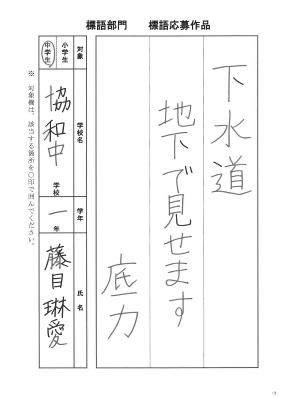 標語部門　標語応募作品
下水道
地下で見せます
底力
対象
小学生
中学生
学校名
協和中
学校
学年
一
年
氏名
藤目琳愛
※　対象欄は、該当する箇所を〇印で囲んでください。